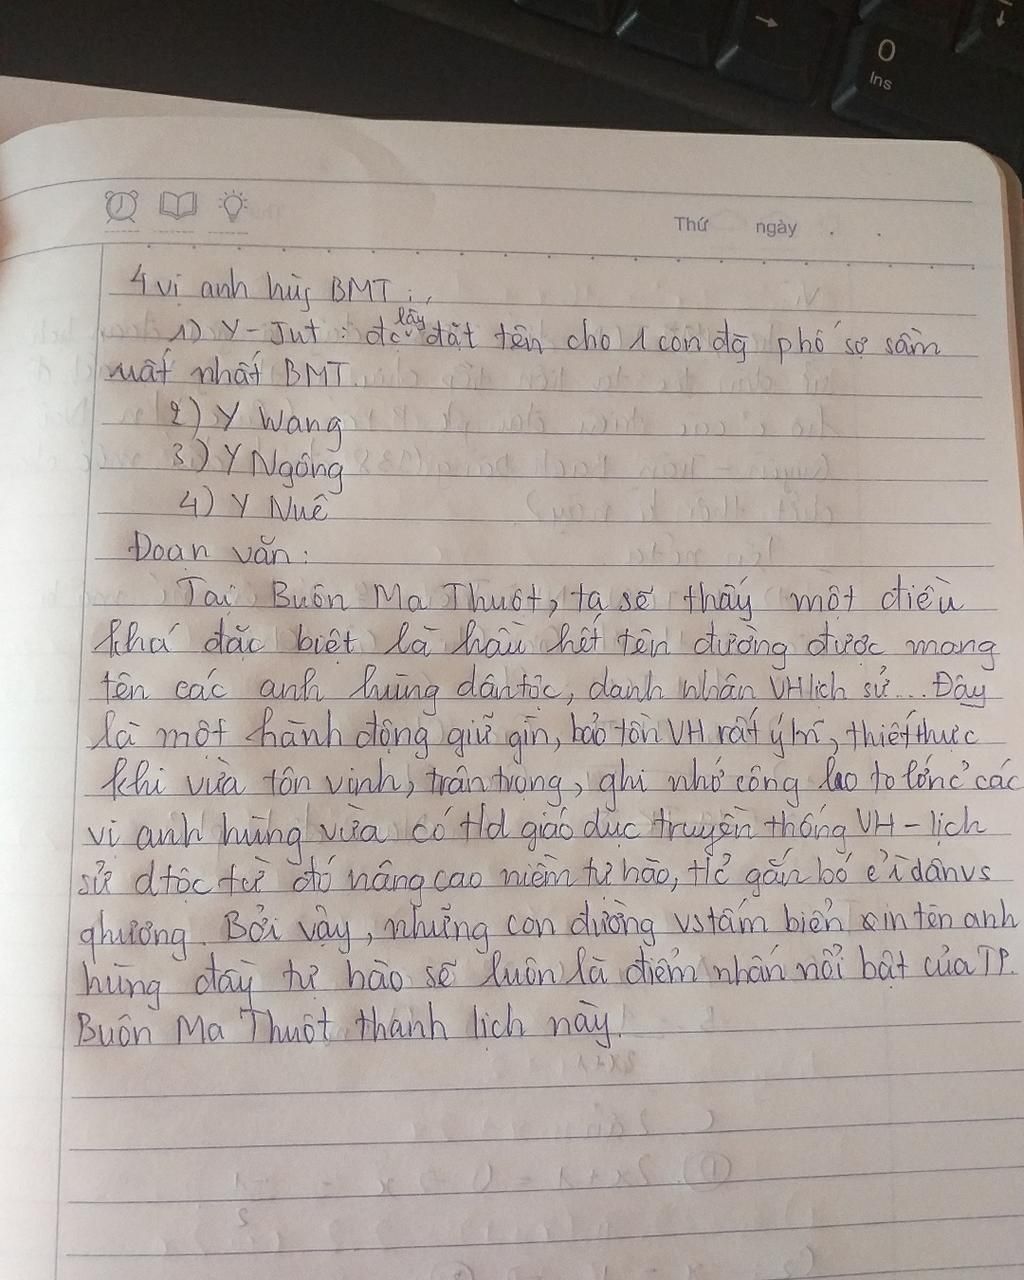 0
Ins
Thứ ngày . .
4 vị anh hùg BMT :
1) Y - Jut : đc lấy đặt tên cho 1 con đg phố sợ sầm
uất nhất BMT.
2) Y Wang
3) Y Ngông
4) Y Nuê
Đoạn văn :
Tại Buôn Ma Thuột, ta sẽ thấy một điều
khá đặc biệt là hầu hết tên đường được mang
tên các anh hùng dân tộc, danh nhân VH lịch sử... Đây
là một hành động giữ gìn, bảo tồn VH rất ý , thiết thực
khi vừa tôn vinh, trân trọng, ghi nhớ công lao to lớn các
vị anh hùng vừa có giáo dục truyền thống VH - lịch
sử dtộc từ đó nâng cao niềm tự hào, gắn bó dân vs
qhương. Bởi vậy, những con đường vs tấm biển in tên anh
hùng đầy tự hào sẽ luôn là điểm nhấn nổi bật của TP.
Buôn Ma Thuột thanh lịch này.